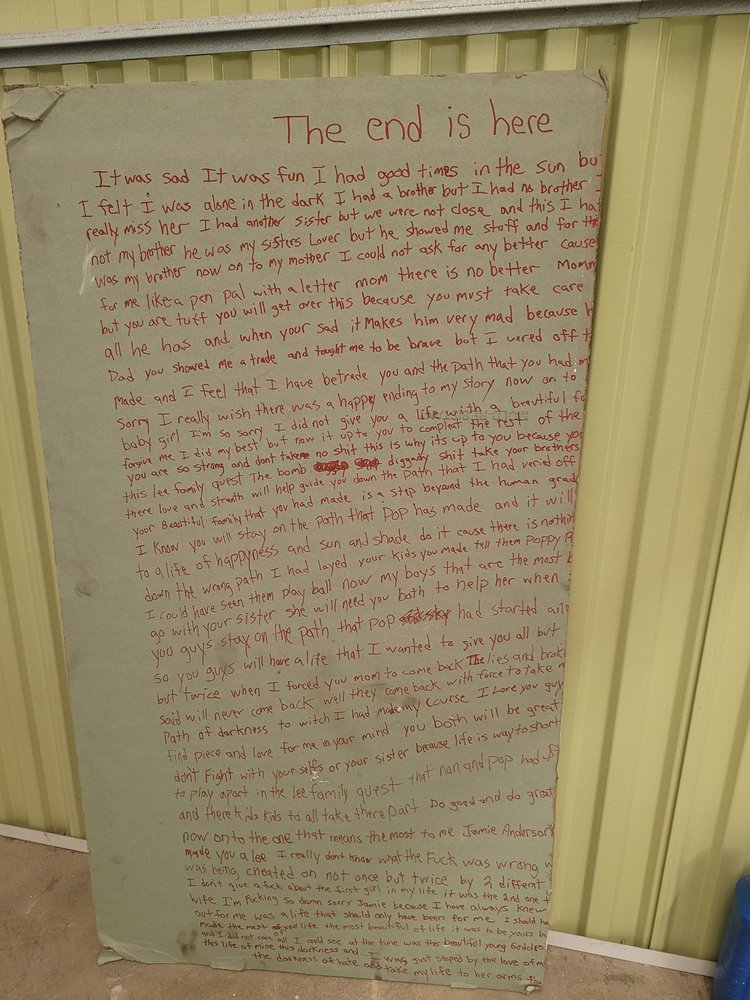 The end is here
It was sad It was fun I had good times in the sun bu
I felt I was alone in the dark I had a brother but I had no brother I
really miss her I had another sister but we were not close and this I hat
not my brother he was my sisters Lover but he showed me stuff and for this
was my brother now on to my mother I could not ask for any better cause
for me like a pen pal with a letter mom there is no better Momm
but you are tuff you will get over this because you must take care
all he has and when your sad it makes him very mad because h
Dad you showed me a trade and tought me to be brave but I vered off t
made and I feel that I have betrade you and the path that you had m
sorry I really wish there was a happy ending to my story now on to
baby girl I'm so sorry I did not give you a life with a beautiful fa
forgive me I did my best but now it up to you to compleat the rest of the
you are so strong and dont take no shit this is why its up to you because you
this lee family quest The bomb diggady shit take your brothers
there love and stranth will help guide you down the path that I had veried off
your Beautiful family that you had made is a step beyand the human grad
I know you will stay on the path that pop has made and it will
to a life of happyness and sun and shade do it cause there is nothin
down the wrong path I had layed your kids you made tell them Poppy
I could have seen them play ball now my boys that are the most b
go with your sister she will need you both to help her when
you guys stay on the path that pop had started and
so you guys will have a life that I wanted to give you all but
but twice when I forced you mom to come back The lies and broke
said will never come back well they came back with force to take
Path of darkness to witch I had made my course I Love you guy
find piece and love for me in your mind you both will be great
dont Fight with your selfs or your sister becase life is way to short
to play apart in the lee family quest that nan and pop had
and there kids kids to all take there part Do good and do great
now on to the one that means the most to me Jamie Anderson
made you a lee I really dont know what the Fuck was wrong w
was being cheated on not once but twice by 2 differnt
I don't give a fuck about the first girl in my life it was the 2nd one t
wife I'm Fucking so damn sorry Jamie because I have always knew
out for me was a life that should only have been for me I should ha
made the most of your life the most beautiful of life it was to be yours bu
and I did not care all I could see at the time was this beautiful young Goddes
this life of mine this darkness and... I was just stoped by the love of m
the darkness of hate and take my life to her arms the